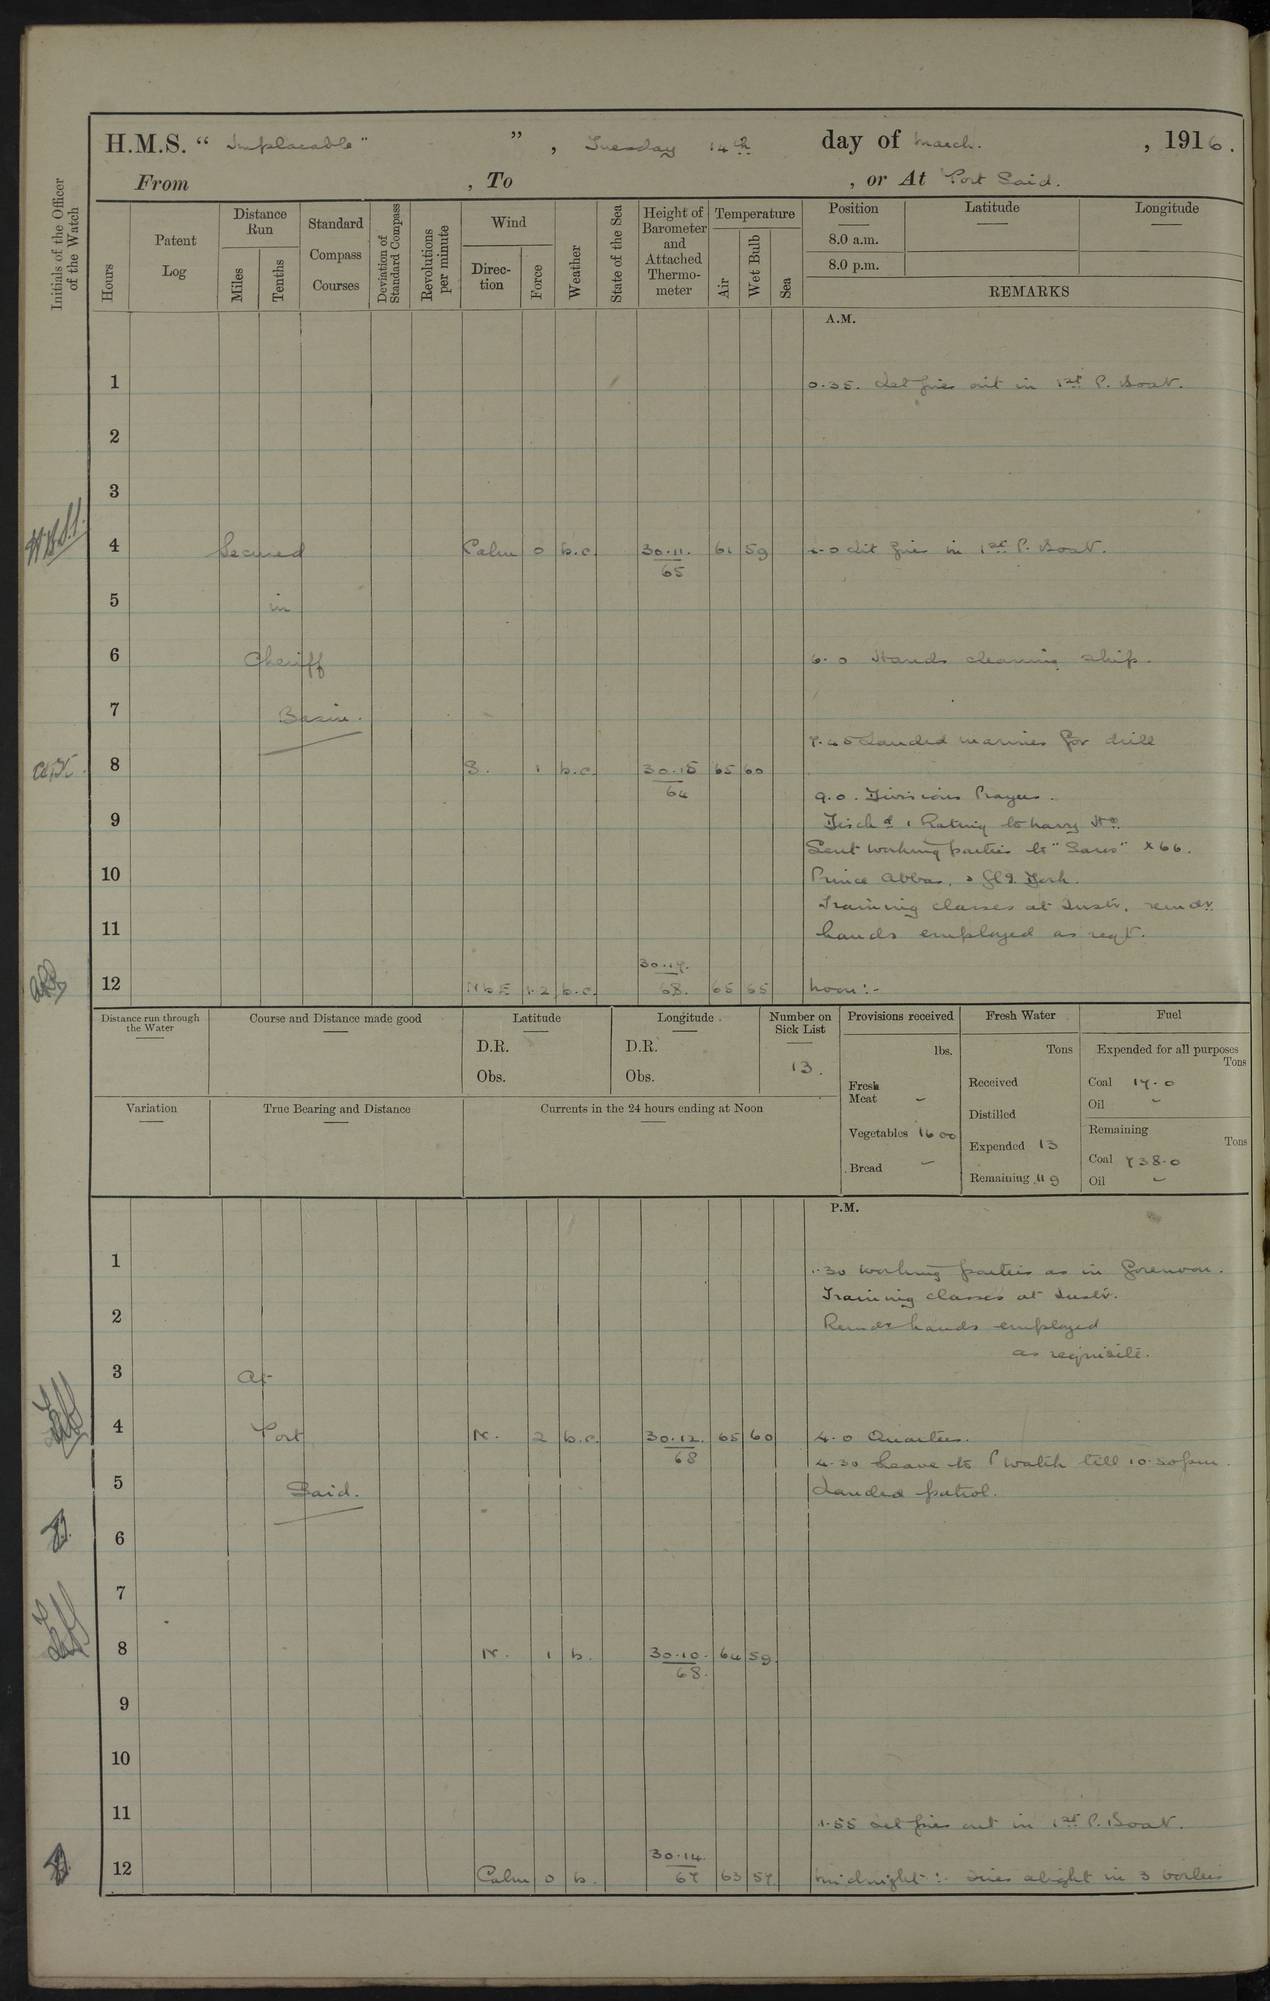 H.M.S. "Implacable" ", Tuesday 14th day of March. , 1916.
From , To , or At Port Said.
Initials of the Officer of the Watch
Hours
Patent Log
Distance Run
Miles
Tenths
Standard Compass Courses
Deviation of Standard Compass
Revolutions per minute
Wind
Direction
Force
Weather
State of the Sea
Height of Barometer and Attached Thermometer
Temperature
Air
Wet Bulb
Sea
Position
8.0 a.m.
8.0 p.m.
Latitude
Longitude
REMARKS
A.M.
1 0.35. Let fires out in 1st P. Boat.
2
3
4 Secured Calm 0 b.c. 30.11. 65 61 59 4.0 Lit fires in 1st P. Boat.
5 in
6 Cheriff 6.0 Hands cleaning ship.
7 Basin.
7.45 Landed marines for drill
8 S. 1 b.c. 30.15 64 65 60
9.0. Divisions Prayers.
9 Disch d 1 Rating to
Sent working parties to X66.
10 Prince Abbas,
Training classes at Instr. remdr
11 hands employed as reqt.
12 NbE 1.2 b.c. 30.17. 68. 65 65 Noon:-
Distance run through the Water
Course and Distance made good
Latitude
D.R.
Obs.
Longitude
D.R.
Obs.
Number on Sick List
13.
Provisions received
lbs.
Fresh Meat -
Vegetables 1600
Bread -
Fresh Water
Tons
Received
Distilled
Expended 13
Remaining 119
Fuel
Expended for all purposes
Tons
Coal 17.0
Oil -
Remaining
Tons
Coal 738.0
Oil -
Variation
True Bearing and Distance
Currents in the 24 hours ending at Noon
P.M.
1 1.30 Working parties as in forenoon.
Training classes at Instr.
2 Remdr hands employed
as requisite.
3 At
4 Port N. 2 b.c. 30.12. 68 65 60 4.0 Quarters.
4.30 Leave to P watch till 10.30pm.
5 Said. Landed patrol.
6
7
8 N. 1 b. 30.10. 68. 64 59
9
10
11 11.55 Let fires out in 1st P. Boat.
12 Calm 0 b. 30.14. 67 63 57 Midnight:- Fires alight in 3 boilers